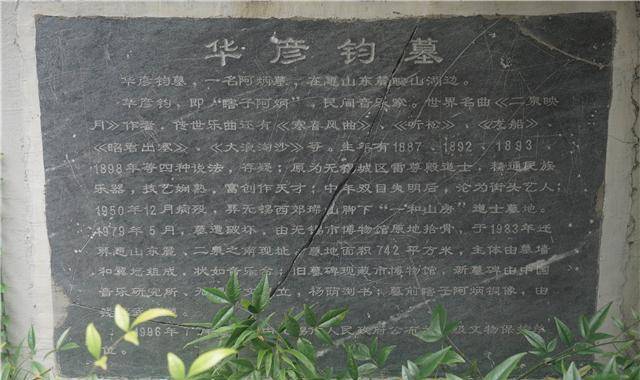 华彦钧墓
华彦钧墓，一名阿炳墓，在惠山东麓映山湖边。
华彦钧，即“瞎子阿炳”，民间音乐家。世界名曲《二泉映
月》作者，传世乐曲还有《寒春风曲》、《听松》、《龙船》
《昭君出塞》、《大浪淘沙》等。生年有1887、1892、1893、
1898年等四种说法，存疑；原为无锡城区雷尊殿道士，精通民族
乐器，技艺娴熟，富创作天才；中年双目失明后，沦为街头艺人；
1950年12月病殁，葬无锡西郊璨山脚下“一和山房”道士墓地。
1979年5月，墓遭破坏，由无锡市博物馆原地拾骨，于1983年迁
葬惠山东麓、二泉之南现址；墓地面积742平方米，主体由墓墙
和翼墙组成，状如音乐台；旧墓碑现藏市博物馆，新墓碑由中国
音乐研究所、无 立，杨荫浏书；墓前瞎子阿炳铜像，由
1996年 人民政府公布 级文物保护单
位。